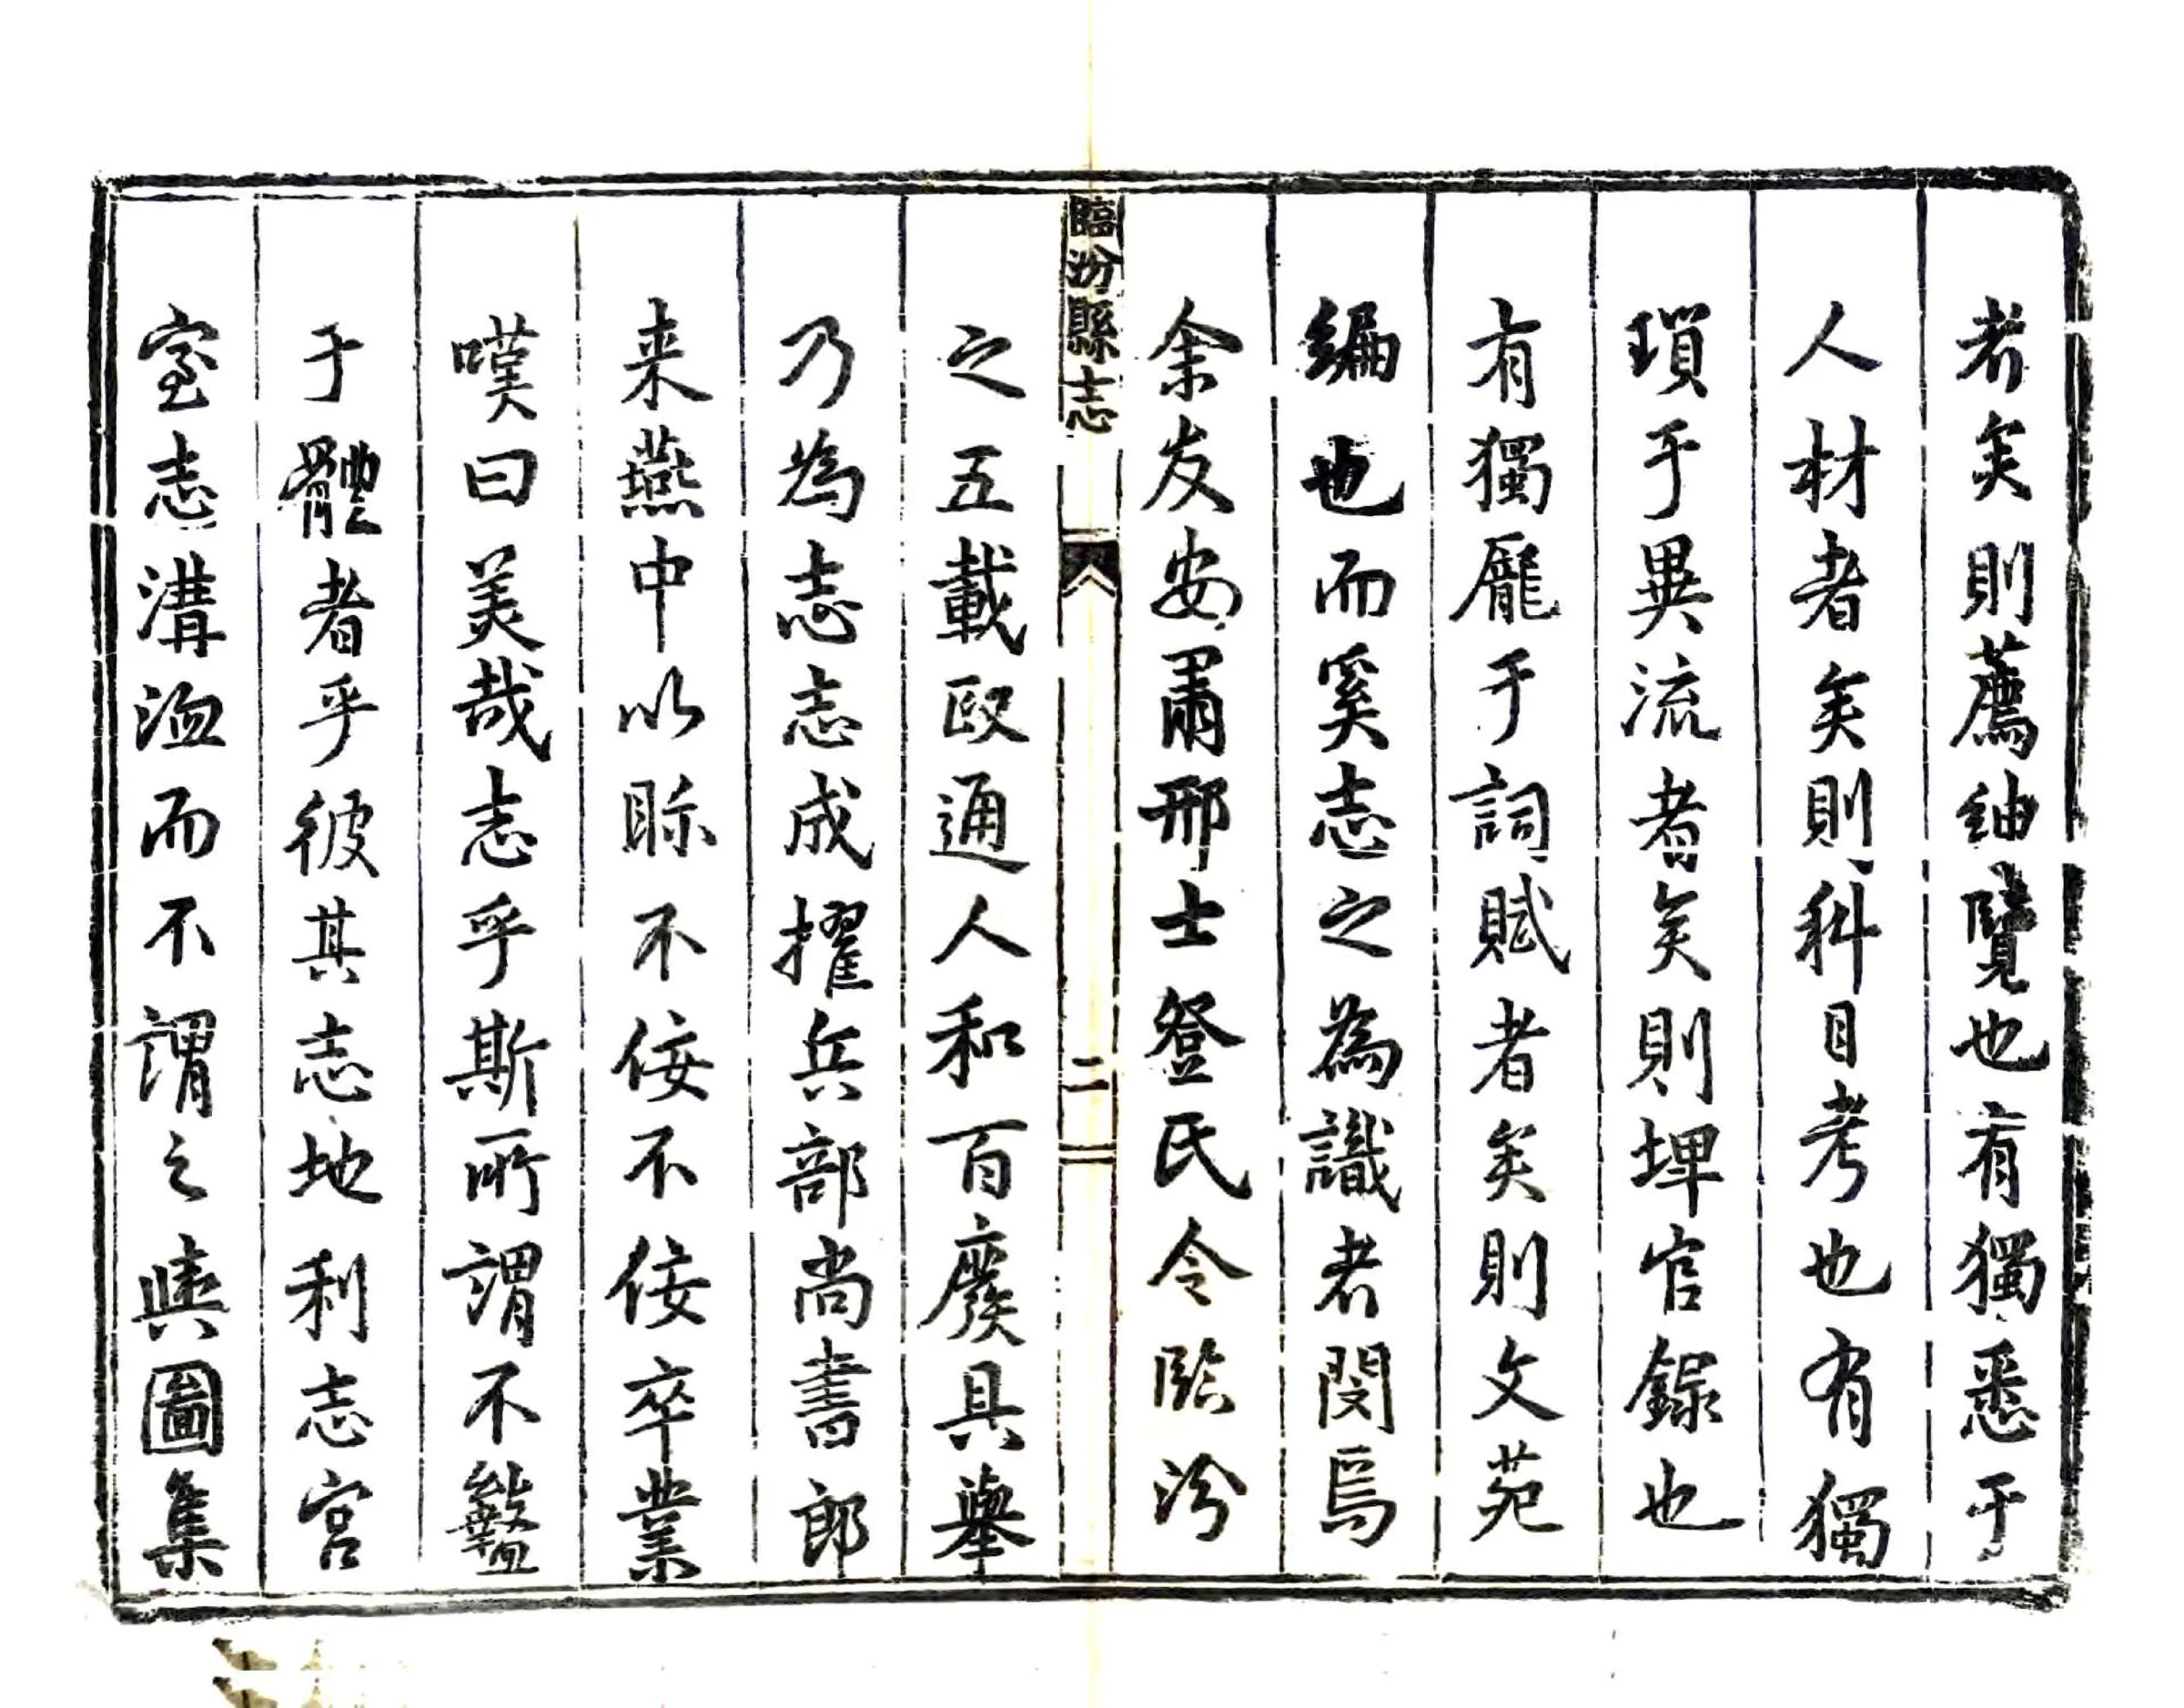 者矣則薦紳覽也有獨悉于
人材者矣則科目考也有獨
瑣于異流者矣則埤官錄也
有獨龐于詞賦者矣則文苑
編也而奚志之為識者閔焉
余友安肅邢士登氏令臨汾
臨汾縣志
二
之五載政通人和百廢具舉
乃為志志成擢兵部尚書郎
来燕中以眎不佞不佞卒業
嘆曰美哉志乎斯所謂不盭
于體者乎彼其志地利志宮
室志溝洫而不謂之輿圖集